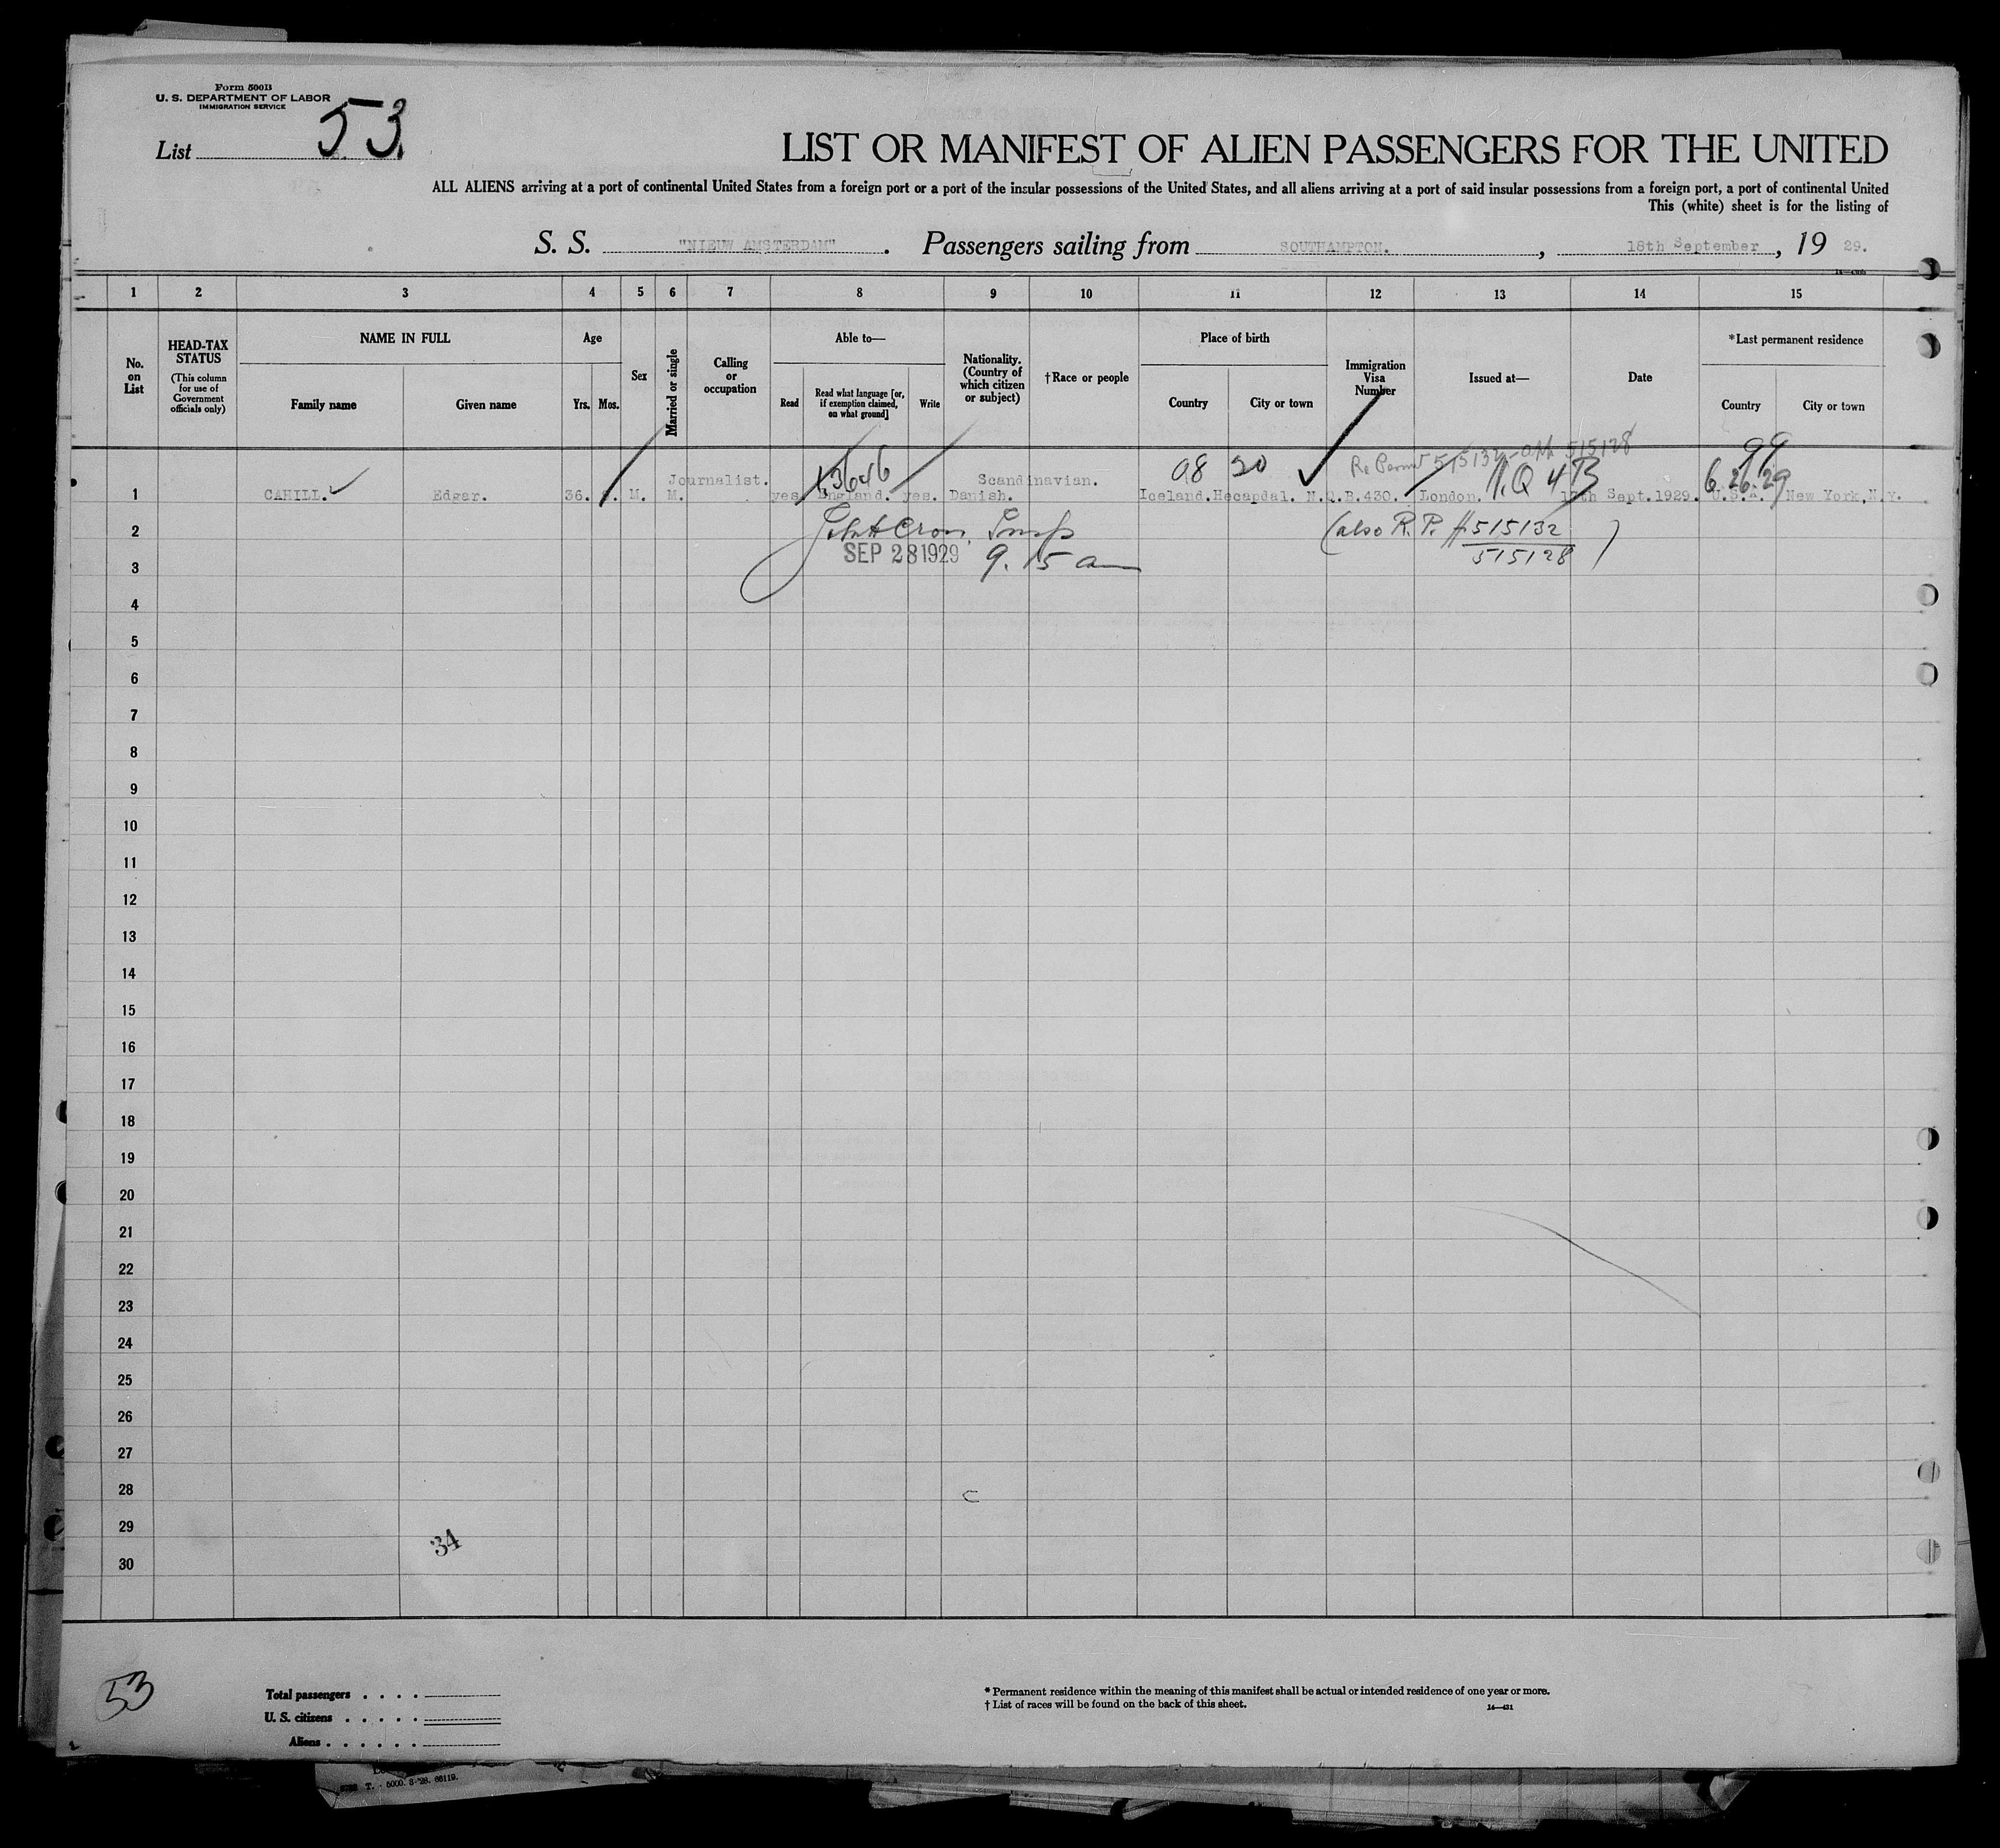 Form 500B
U. S. DEPARTMENT OF LABOR
IMMIGRATION SERVICE
List 53
LIST OR MANIFEST OF ALIEN PASSENGERS FOR THE UNITED
ALL ALIENS arriving at a port of continental United States from a foreign port or a port of the insular possessions of the United States, and all aliens arriving at a port of said insular possessions from a foreign port, a port of continental United
This (white) sheet is for the listing of
S. S. "NIEUW AMSTERDAM". Passengers sailing from SOUTHAMPTON., 18th September, 19 29.
1 2 3 4 5 6 7 8 9 10 11 12 13 14 15
No. on List
HEAD-TAX STATUS
(This column for use of Government officials only)
NAME IN FULL
Family name Given name
Age
Yrs. Mos.
Sex
Married or single
Calling or occupation
Able to—
Read
Read what language [or, if exemption claimed, on what ground]
Write
Nationality. (Country of which citizen or subject)
†Race or people
Place of birth
Country City or town
Immigration Visa Number
Issued at—
Date
*Last permanent residence
Country City or town
Re Permit 515132 - 515128
98 20 99
1 Q 4 B 6.26.29
Journalist. Scandinavian.
1 CAHILL. Edgar. 36. M. M. yes England. yes. Danish. Iceland. N.Q.B.430. London. 17th Sept.1929. U.S.A. New York,N.Y.
2 Insp (also R. P. # 515132
515128)
SEP 28 1929 9.15 am
3
4
5
6
7
8
9
10
11
12
13
14
15
16
17
18
19
20
21
22
23
24
25
26
27
28
29
34
30
53
Total passengers
U. S. citizens
Aliens
* Permanent residence within the meaning of this manifest shall be actual or intended residence of one year or more.
† List of races will be found on the back of this sheet.
14—431